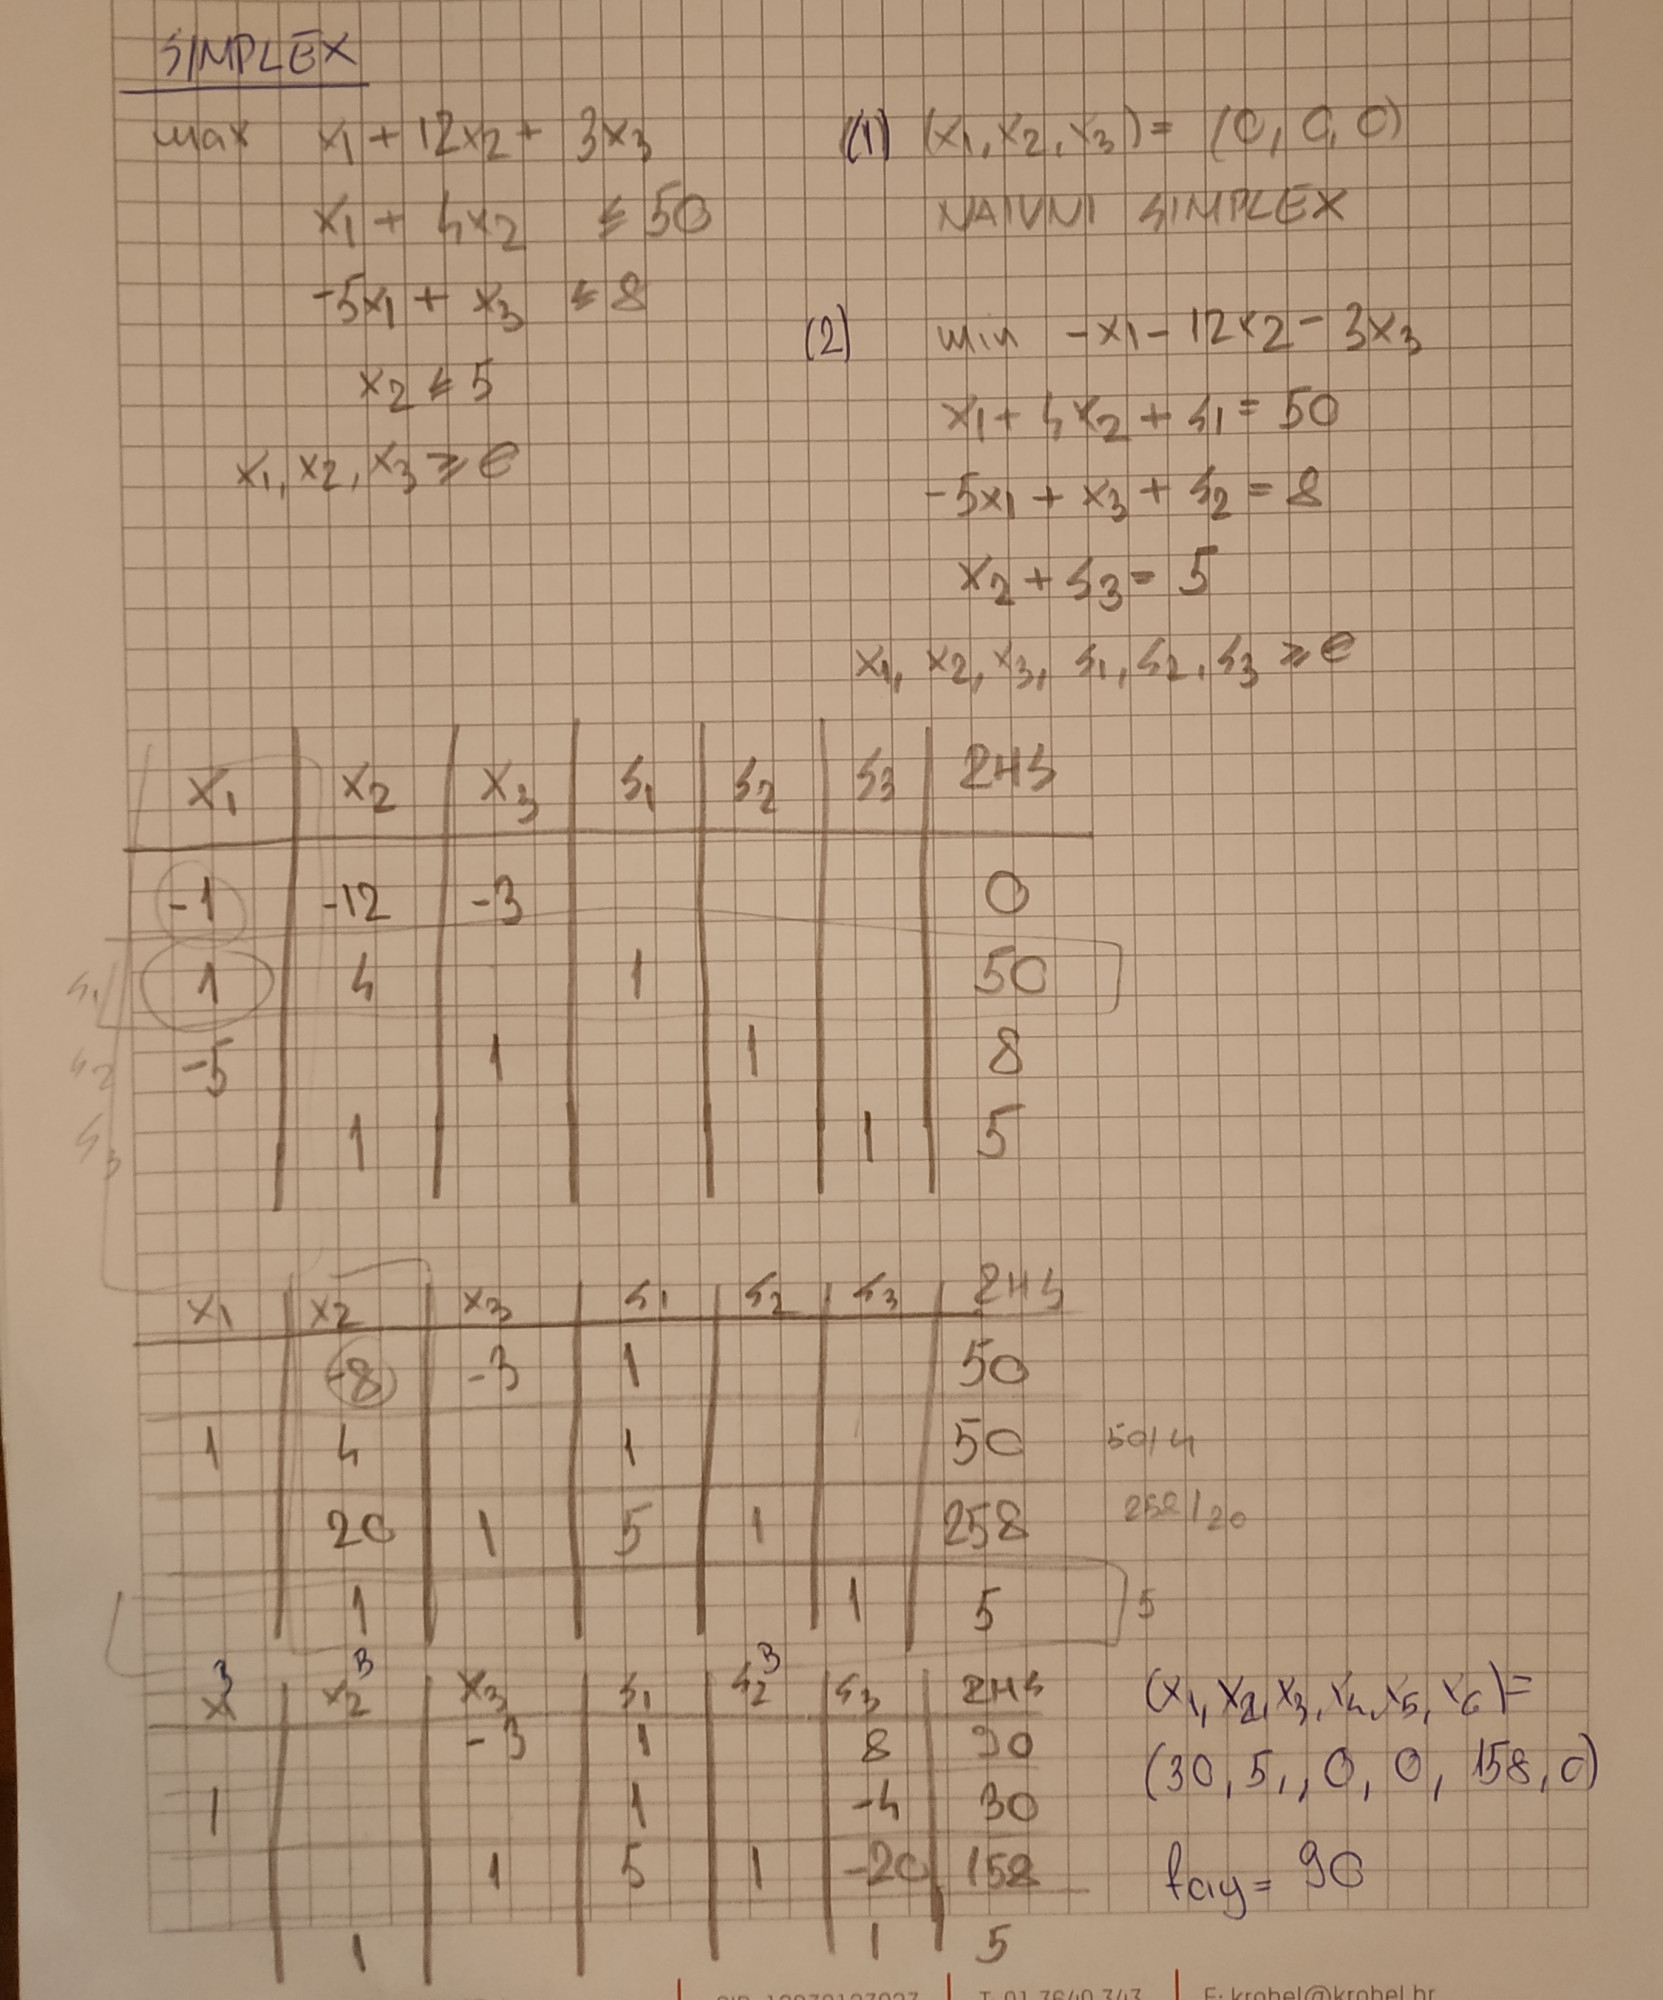 SIMPLEX
max x1 + 12x2 + 3x3
x1 + 4x2 ≤ 50
-5x1 + x3 ≤ 8
x2 ≤ 5
x1, x2, x3 ≥ 0
(1) (x1, x2, x3) = (0, 0, 0)
NAIVNI SIMPLEX
(2) min -x1 - 12x2 - 3x3
x1 + 4x2 + s1 = 50
-5x1 + x3 + s2 = 8
x2 + s3 = 5
x1, x2, x3, s1, s2, s3 ≥ 0
x1 x2 x3 s1 s2 s3 RHS
-1 -12 -3 0
s1 1 4 1 50
s2 -5 1 1 8
s3 1 1 5
x1 x2 x3 s1 s2 s3 RHS
-8 -3 1 50
1 4 1 50 50/4
20 1 5 1 258 258/20
1 1 5 5
x2 B x3 s1 s2 B s3 RHS
-3 1 8 90
1 1 -4 30
1 5 1 -20 158
1 1 5
(x1, x2, x3, x4, x5, x6) =
(30, 5,, 0, 0, 158, 0)
= 90
T: 01 7640 343
E: krobel@krobel.hr